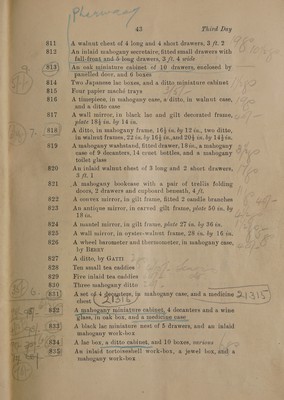 43 Third Day
811 A walnut chest of 4 long and 4 short drawers, 3 ft. 2
812 An inlaid mahogany secretaire, fitted small drawers with
fall-front and 5 long drawers, 3 ft. 4 wide
813 An oak miniature cabinet of 10 drawers, enclosed by
panelled door, and 6 boxes
814 Two Japanese lac boxes, and a ditto miniature cabinet
815 Four papier maché trays
816 A timepiece, in mahogany case, a ditto, in walnut case,
and a ditto case
817 A wall mirror, in black lac and gilt decorated frame,
plate 18½ in. by 14 in.
818 A ditto, in mahogany frame, 16½ in. by 12 in., two ditto,
in walnut frames, 22 in. by 16½ in., and 20½ in. by 14½ in.
819 A mahogany washstand, fitted drawer, 18 in., a mahogany
case of 9 decanters, 14 cruet bottles, and a mahogany
toilet glass
820 An inlaid walnut chest of 3 long and 2 short drawers,
3 ft. 1
821 A mahogany bookcase with a pair of trellis folding
doors, 2 drawers and cupboard beneath, 4 ft.
822 A convex mirror, in gilt frame, fitted 2 candle branches
823 An antique mirror, in carved gilt frame, plate 50 in. by
18 in.
824 A mantel mirror, in gilt frame, plate 27 in. by 96 in.
825 A wall mirror, in oyster-walnut frame, 28 in. by 16 in.
826 A wheel barometer and thermometer, in mahogany case,
by BERRY
827 A ditto, by GATTI
828 Ten small tea caddies
829 Five inlaid tea caddies
830 Three mahogany ditto
831 A set of 4 decanters, in mahogany case, and a medicine
chest 21314 21315
832 A mahogany miniature cabinet, 4 decanters and a wine
glass, in oak box, and a medicine case
833 A black lac miniature nest of 5 drawers, and an inlaid
mahogany work-box
834 A lac box, a ditto cabinet, and 10 boxes, various
835 An inlaid tortoiseshell work-box, a jewel box, and a
mahogany work-box